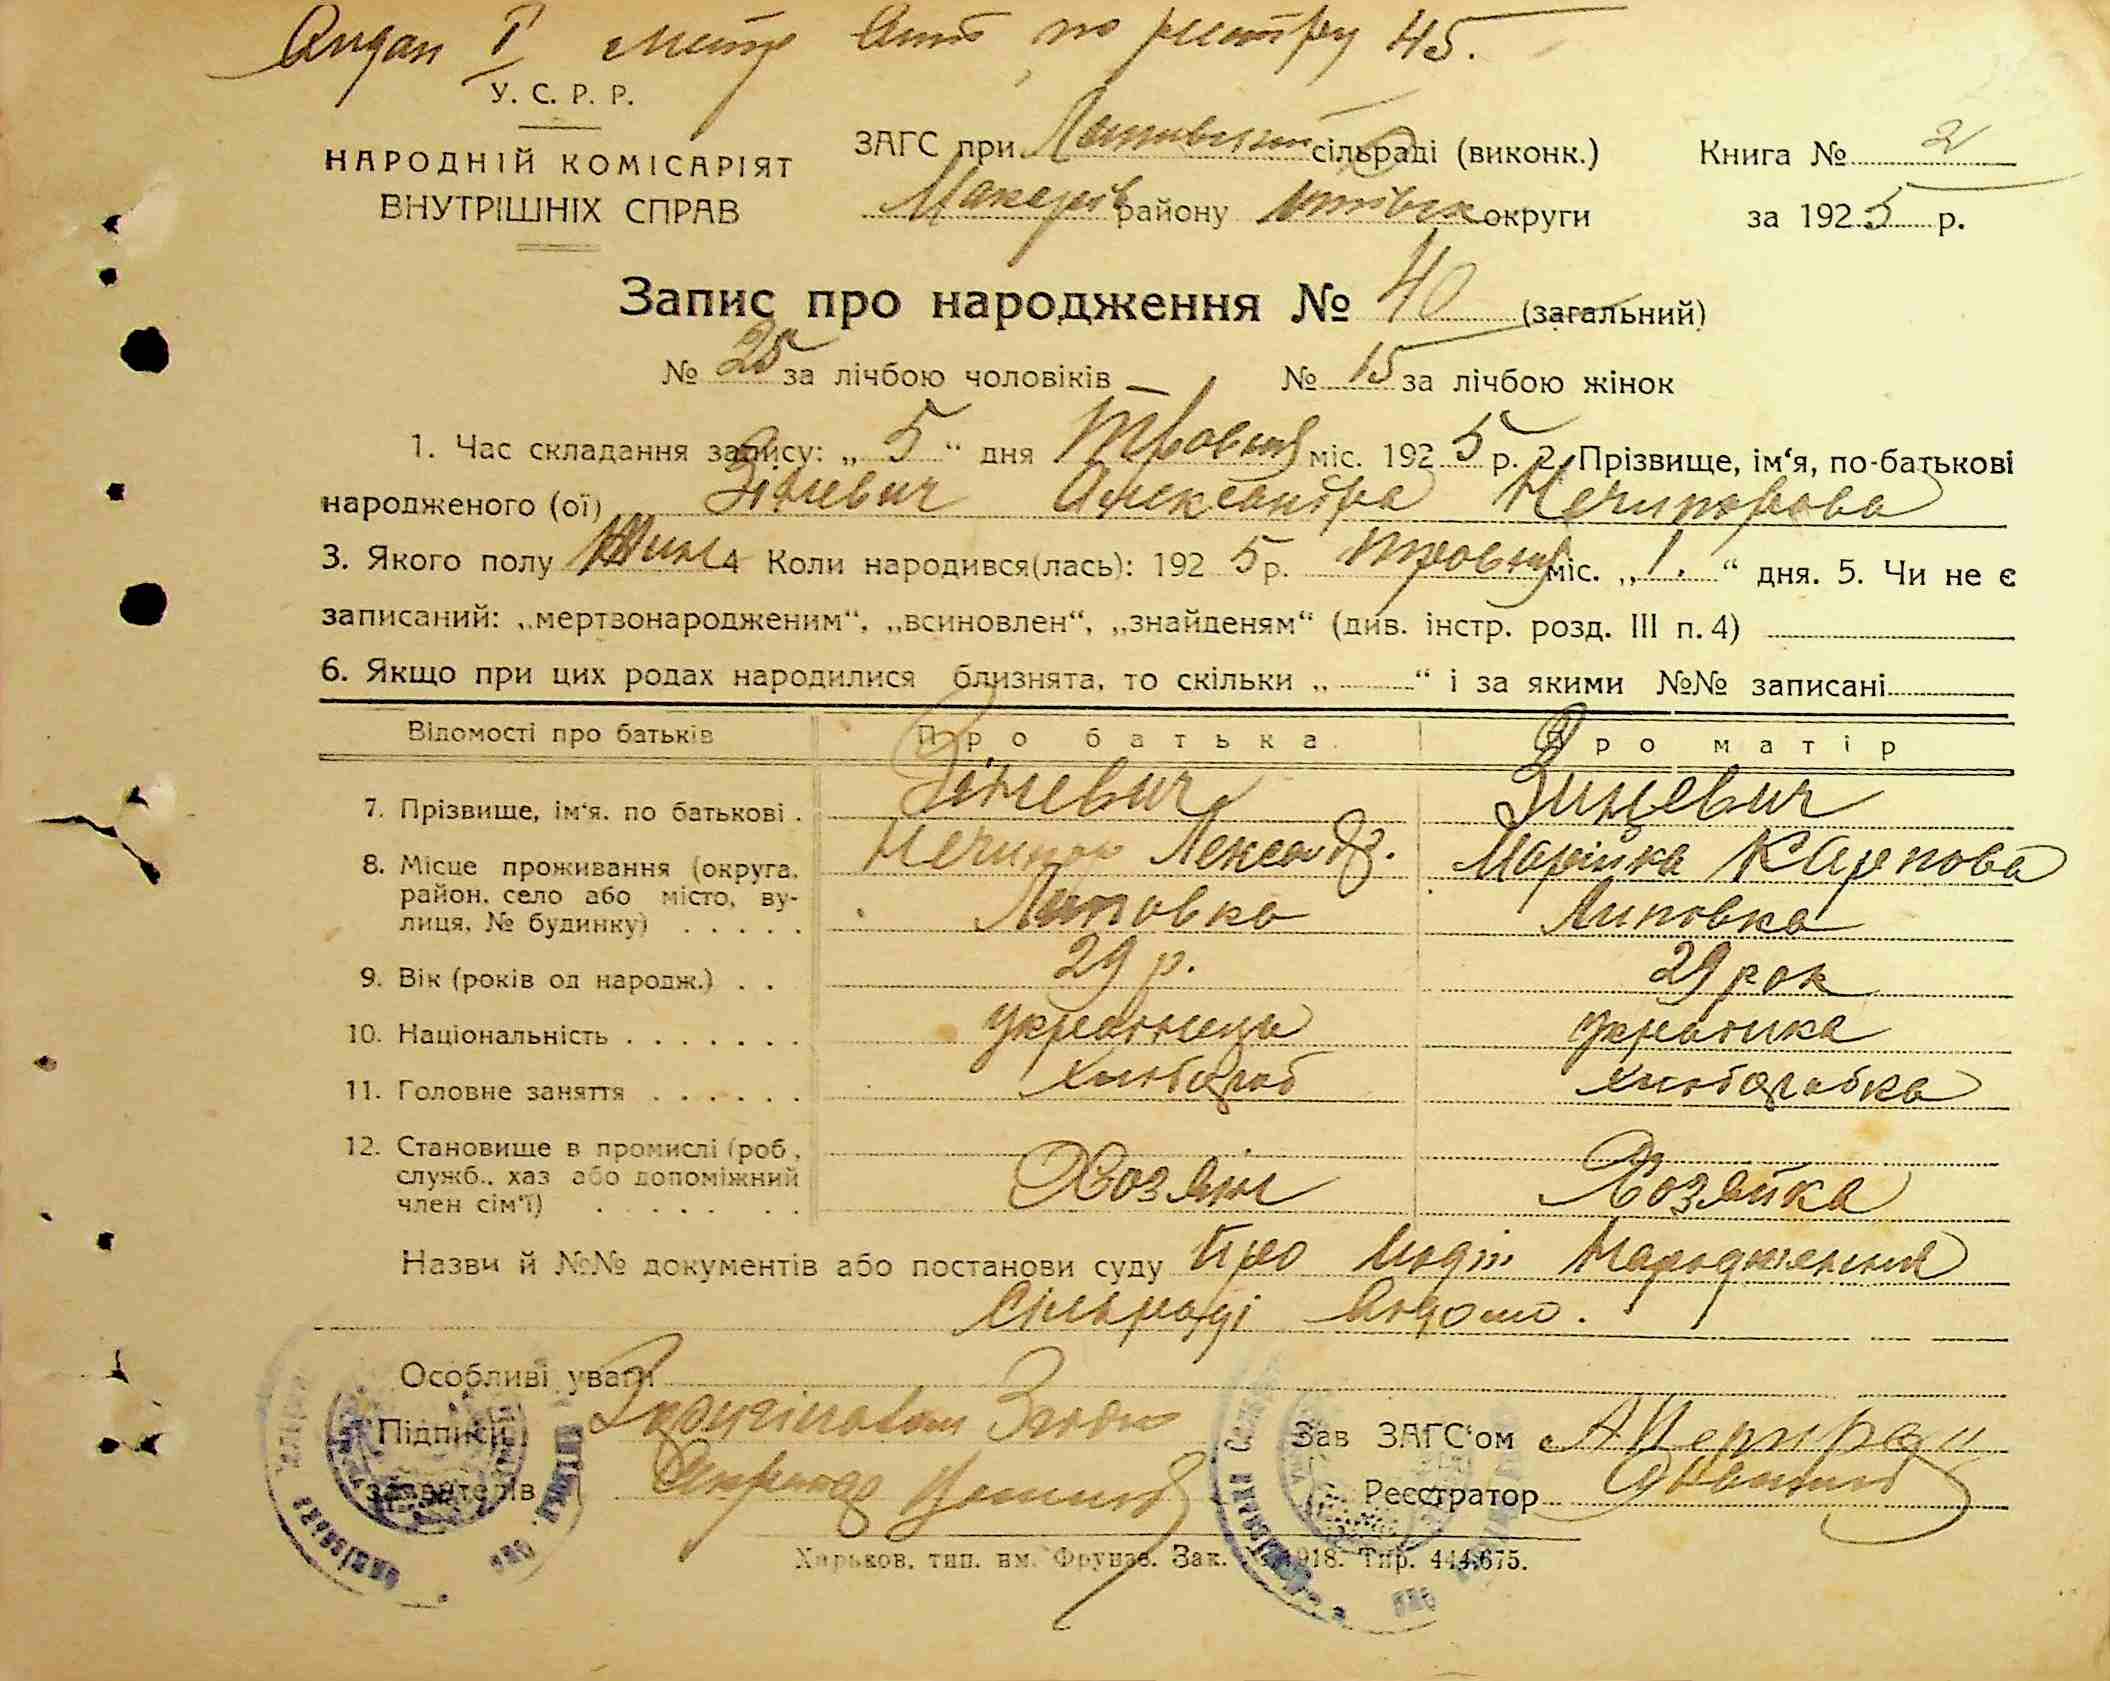 по реєстру 45.
У. С. Р. Р.
НАРОДНІЙ КОМІСАРІЯТ
ВНУТРІШНІХ СПРАВ
ЗАГС при сільраді (виконк.)
Макарів району округи
Книга № 2
за 1925 р.
Запис про народження № 40 (загальний)
№ 25 за лічбою чоловіків — № 15 за лічбою жінок
1. Час складання запису: „5“ дня Травня міс. 1925 р. 2. Прізвище, ім‘я, по-батькові
народженого (ої) Зінцевич Александра Нечипорова
3. Якого полу Жин 4 Коли народився(лась): 1925 р. травня міс. „1.“ дня. 5. Чи не є
записаний: „мертвонародженим“, „всиновлен“, „знайденям“ (див. інстр. розд. III п. 4)
6. Якщо при цих родах народилися близнята, то скільки „ “ і за якими №№ записані
Відомості про батьків Про батька Про матір
7. Прізвище, ім‘я. по батькові . Зінцевич Зинцевич
Нечипор Лександ. Марійка Карпова
8. Місце проживання (округа, район, село або місто, вулиця, № будинку) . . . . . Липовка Липовка
9. Вік (років од народж.) . . 29 р. 29 рок
10. Національність . . . . . . . українець українка
11. Головне заняття . . . . . . хлібороб хліборобка
12. Становище в промислі (роб., служб., хаз або допоміжний член сім‘ї) . . . . . . . Хозяїн Хозяйка
Назви й №№ документів або постанови суду Про подію Народження
сільраді відомо.
Особливі уваги
Підписи заявителів
Зав ЗАГС‘ом
Реєстратор
Харьков, тип. им. Фрунзе. Зак. № 1918. Тир. 444.675.